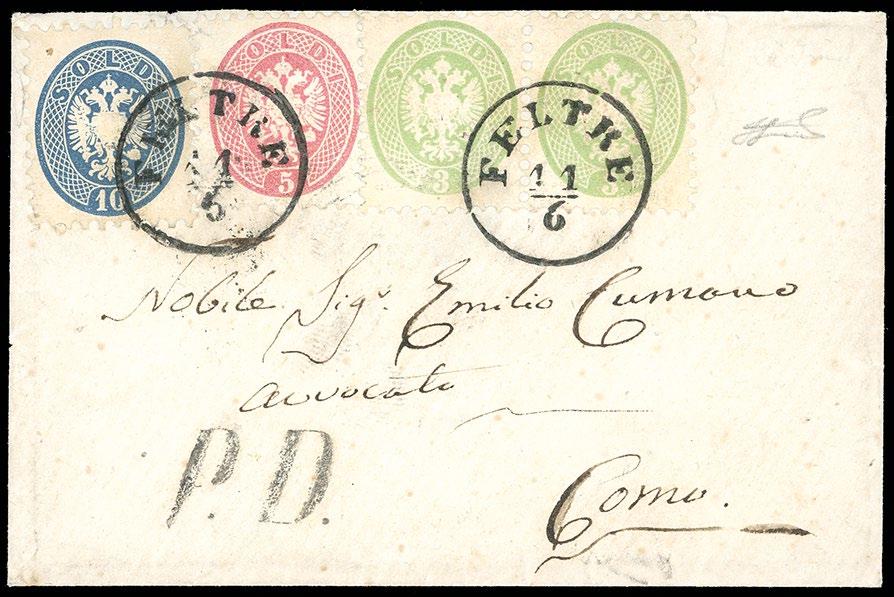 SOLDI SOLDI SOLDI SOLDI
10 5 3 3
FELTRE FELTRE
11 11
5 6
Nobile Sigr. Emilio Cumano
avvocato
P.D.
Como.